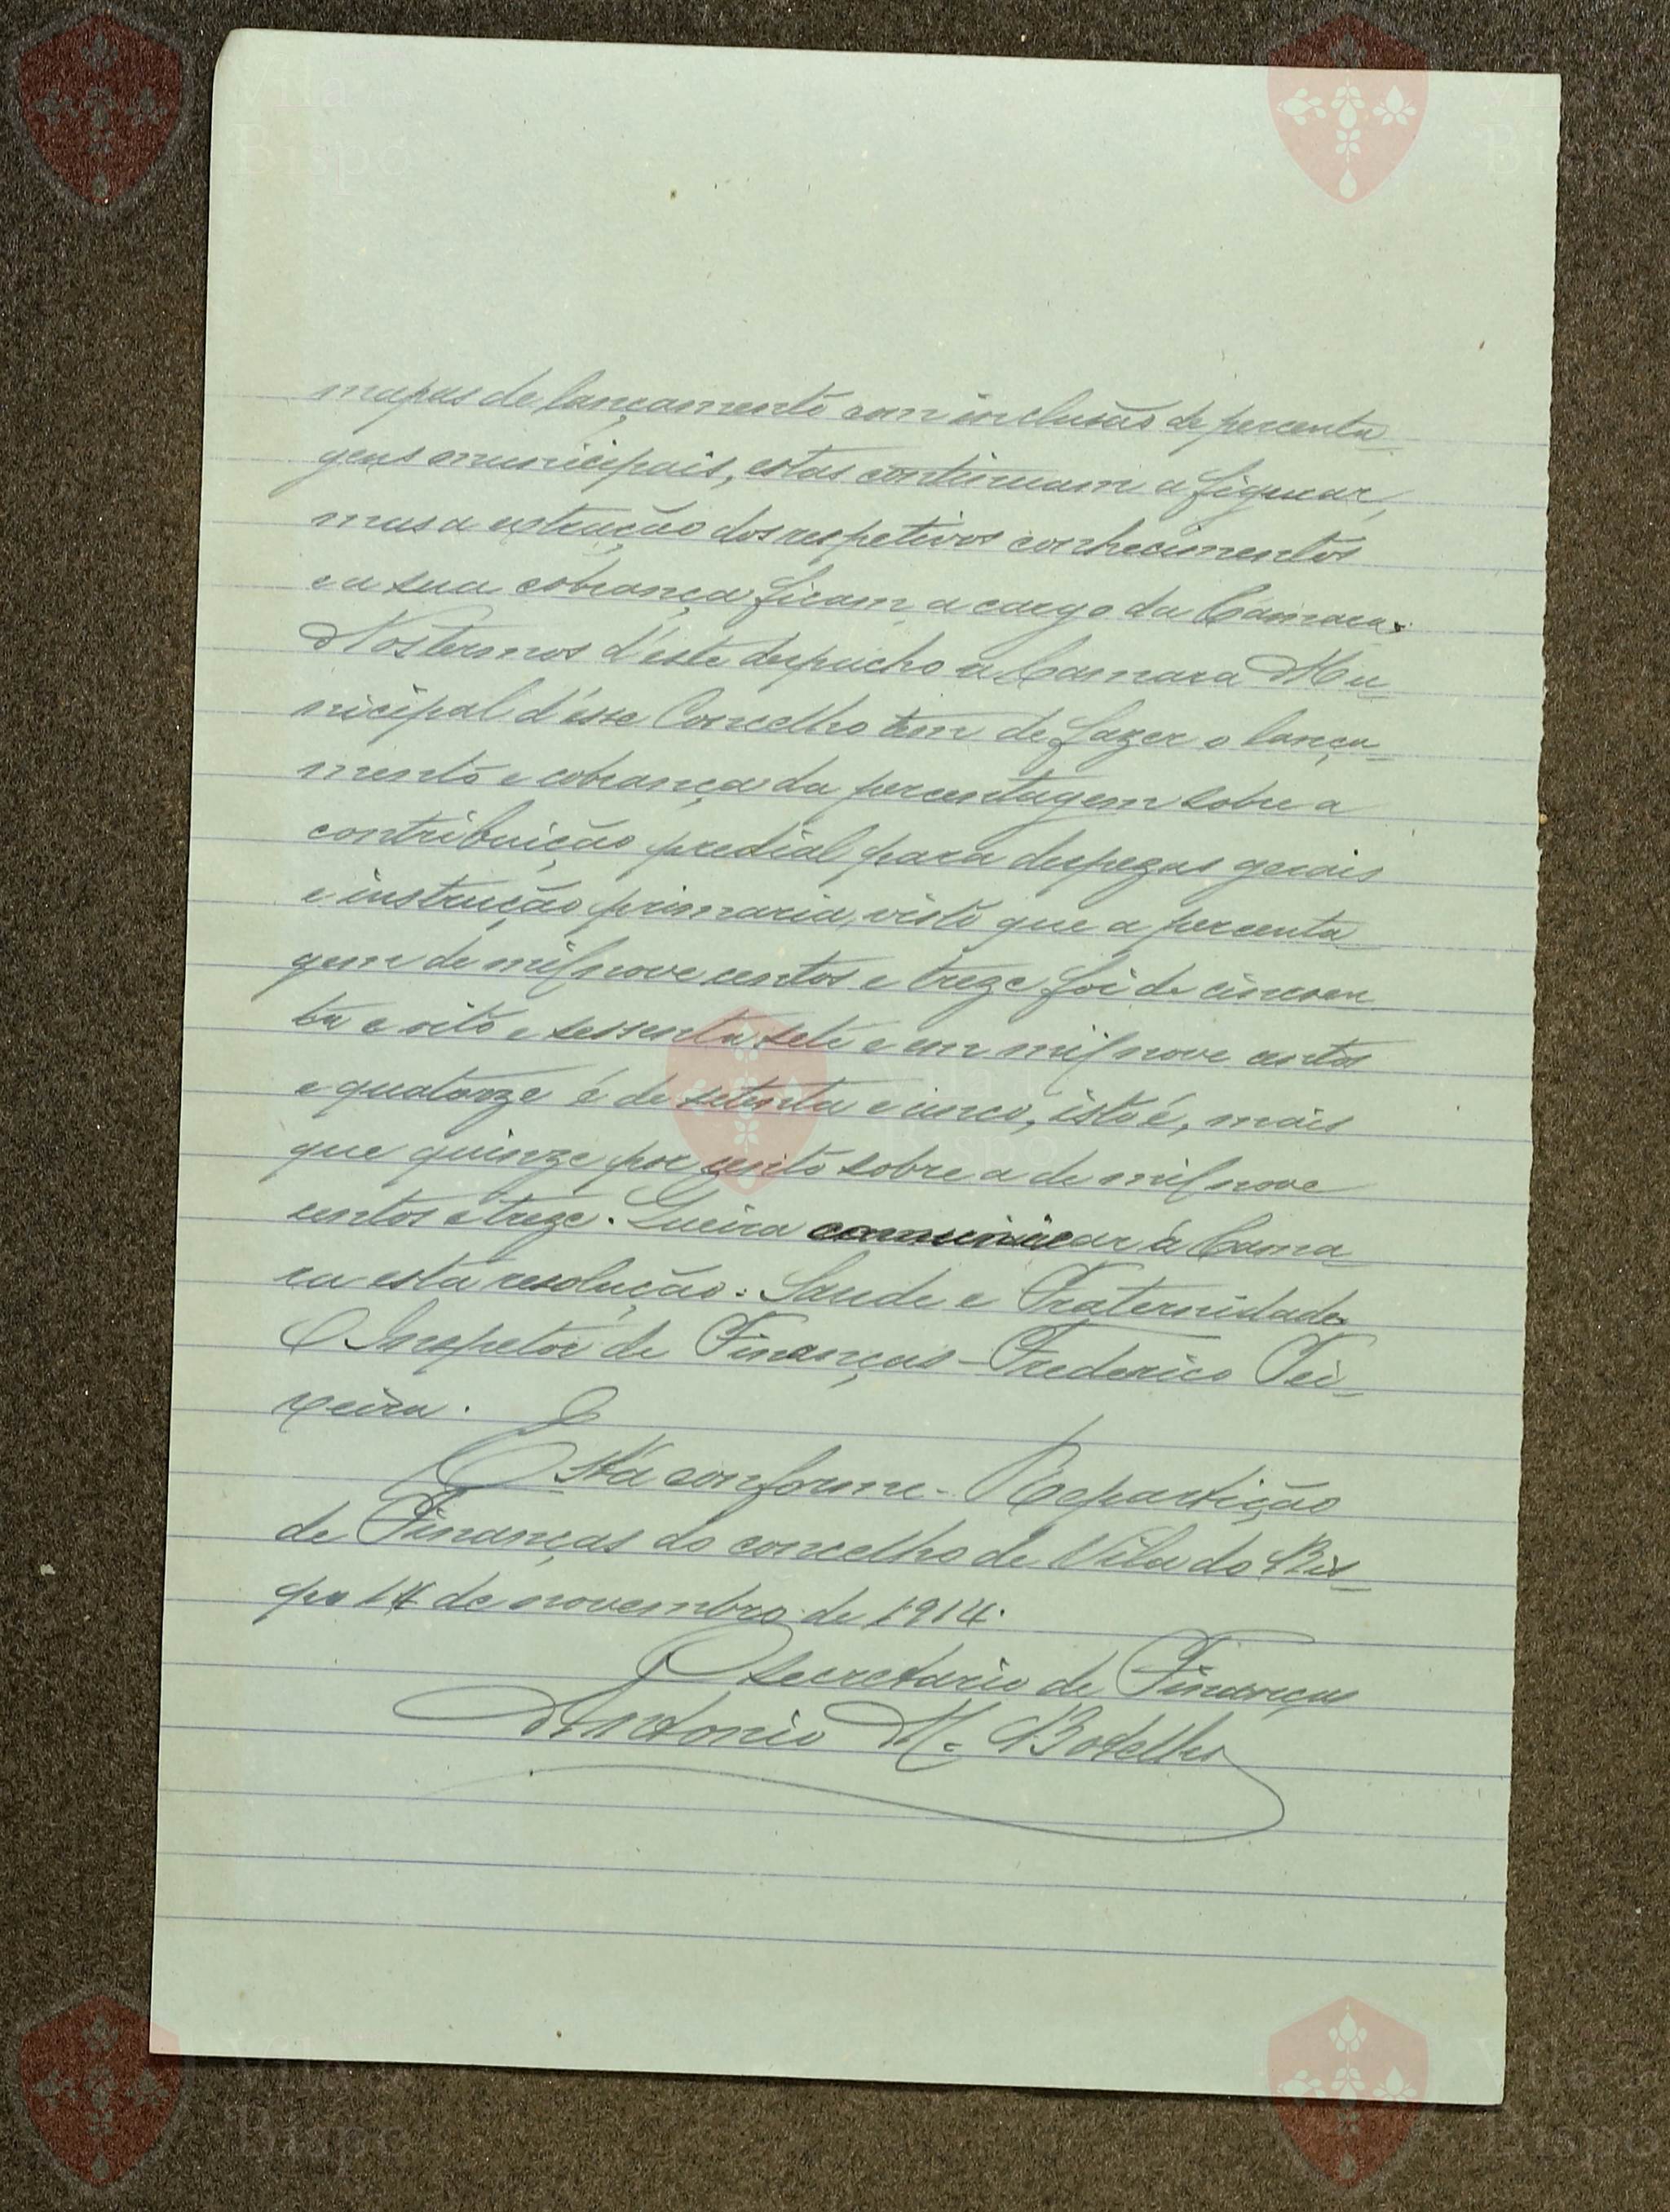 mapas de lançamento com inclusão de percenta-
gens municipais, estas continuam a figurar,
mas a extração dos respetivos conhecimentos
e a sua cobrança ficam a cargo da Camara.
Nos termos d'este despacho a Camara Mu-
nicipal d'esse Concelho tem de fazer o lança-
mento e cobrança da percentagem sobre a
contribuição predial para despezas gerais
e instrução primaria, visto que a percenta-
gem de mil nove centos e treze foi de cincoen
ta e oito e sessenta sete e em mil nove centos
e quatorze é de setenta e cinco, isto é, mais
que quinze por cento sobre a de mil nove
centos e treze. Queira comunicar á Cama-
ra esta resolução. Saude e Fraternidade.
O Inspetor de Finanças - Frederico Tei-
xeira.
Está conforme - Repartição
de Finanças do concelho de Vila do Bis-
po 14 de novembro de 1914.
O Secretario de Finanças
Antonio M. Botelho
Vila do
Bispo